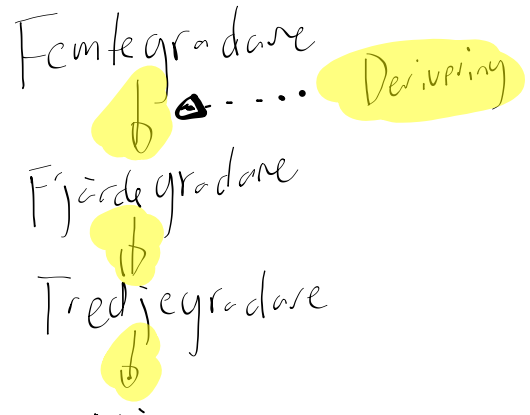 Femtegradare
Derivering
Fjärdegradare
Tredjegradare